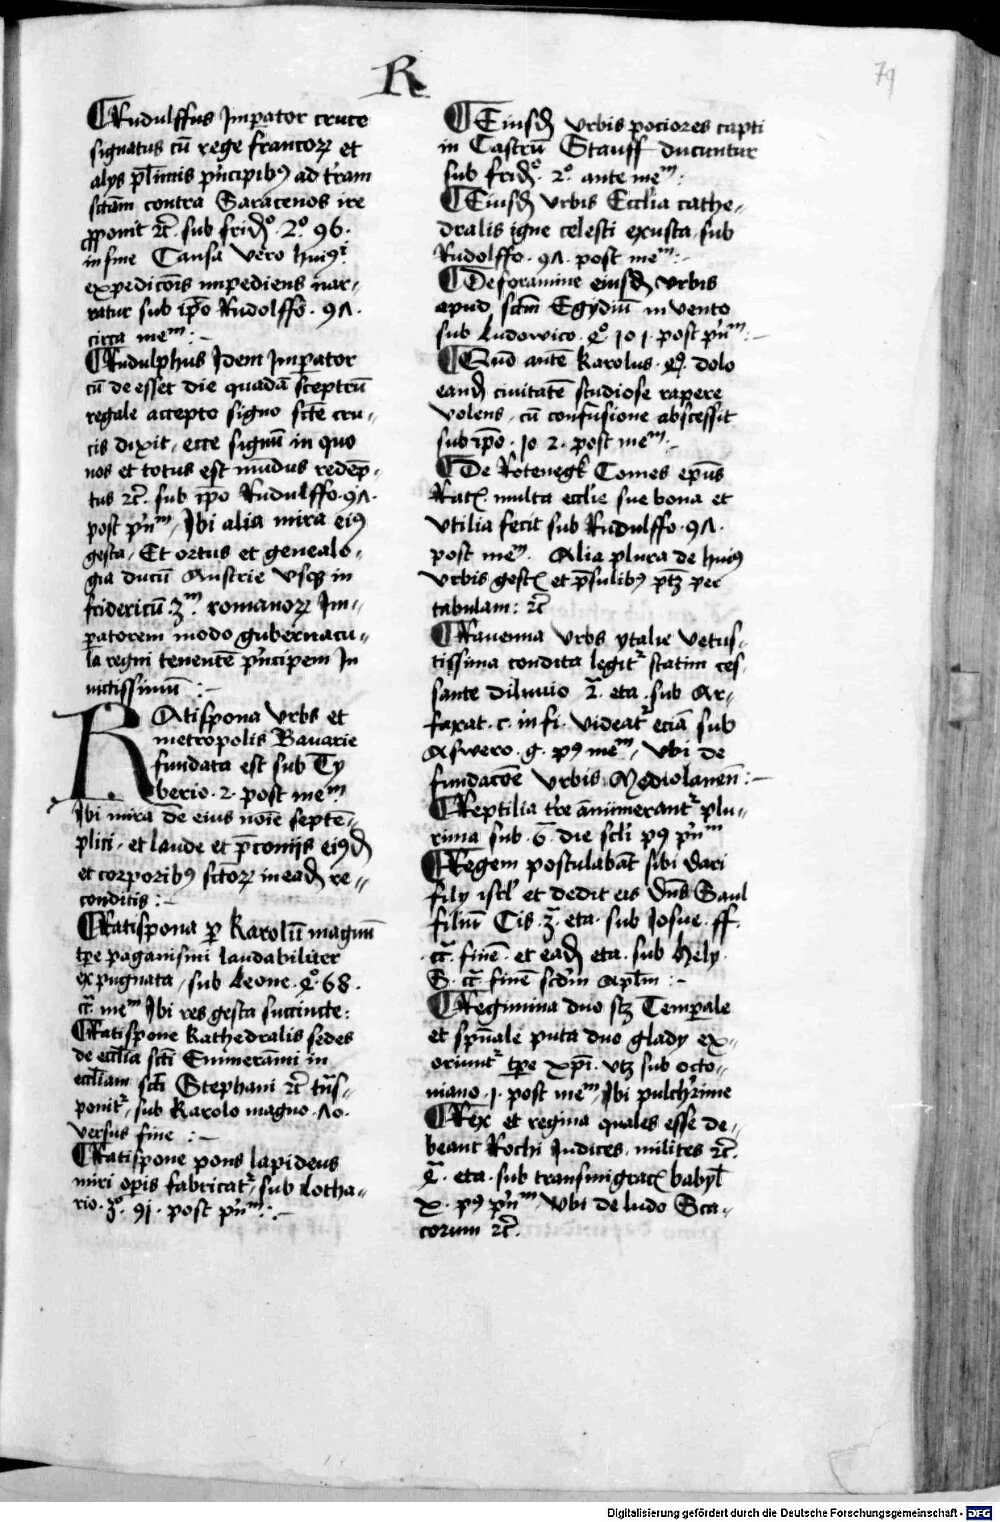 R
79
Rudulffus Imperator cruce
signatus cū rege francoꝝ et
alys pl̄imis p̄ncipibꝰ ad t̄ram
sc̄tam contra Saracenos ire
ꝓponit ⁊c̄. sub frid̄º. 2º. 96.
in fine Causa vero huiꝰi
expedicōis impediens nar-
ratur sub ip̄o Rudolffo. 91.
circa meᵐ:~
Rudulphus Idem Imperator
cū de esset die quadā sceptrū
regale accepto signo sc̄te cru-
cis dixit, ecce signū in quo
nos et totus est mūdus redēp-
tus ⁊c̄. sub ip̄o Rudulffo. 91.
post p̄nᵐ, Ibi alia mira eiꝰ
gesta, Et ortus et genealo-
gia ducū Austrie vsqꝫ in
fridericū 3ᵐ. romanoꝝ Im-
peratorem modo gubernacu-
la regni tenentē p̄ncipem In
uictissimū:~
RAtispona vrbs et
metropolis Bauarie
fundata est sub Ty
berio. 2. post meᵐ
Ibi mira de eius noīe septē-
plici, et laude et p̄conijs eiꝰd̄
et corporibꝰ sc̄toꝝ in ead̄ re-
conditis:~
Ratispona ꝑ karolū magnū
tp̄e paganismi laudabiliter
expugnata, sub Leone. 4º. 68.
cᵃ. meᵐ Ibi res gesta succincte:
Ratispone kathedralis sedes
de eccl̄ia sc̄ti Emmerāmi in
eccl̄iam sc̄ti Stephani ⁊c̄ trās-
ponitᵣ, sub karolo magno. 70.
versus fine:~
Ratispone pons lapideus
miri op̄is fabricatᵣ, sub Lotha-
rio. 3º. 91. post p̄nᵐ:~
Eiusd̄ vrbis pociores capti
in Castrū Stauff ducuntur
sub frid̄º. 2º. ante meᵐ:
Eiusd̄ vrbis Eccl̄ia cathe-
dralis igne celesti exusta, sub
Rudolffo. 91. post meᵐ:~
De foramine eiusd̄ vrbis
apud sc̄tm Egydiū in vento
sub Ludowico. 4º 101. post p̄nᵐ:~
Quō autē karolus. 4ꝰ. dolo
eand̄ ciuitatē studiose rapere
volens, cū confusione abscessit
sub ip̄o. 102. post meᵐ:~
De Rotenegk Comes ep̄us
Rat. multa eccl̄ie sue bona et
vtilia fecit sub Rudulffo. 91.
post meᵐ. Alia plura de huiꝰ
vrbis gest̄ et p̄sulibꝰ ptꝫ per
tabulam: ⁊c̄
Rauenna vrbs ytalie vetus-
tissima condita legitᵣ statim ces-
sante diluuio 2ᵃ. eta. sub Ar-
faxat. c. in fi. videatᵣ eciā sub
Aswero. g. pꝰ meᵐ, vbi de
fundacōe vrbis Mediolanen̄:~
Reptilia t̄re ānumerantᵣ plu-
rima sub. 6. die sc̄li pꝰ p̄nᵐ
Regem postulabāt sibi dari
fily isr̄l et dedit eis dn̄s Saul
filiū Cis. 3ᵃ. eta. sub Iosue. ff.
cᵃ. finē. et ead̄ eta. sub hely.
G. cᵃ. finē scd̄m Apl̄m:~
Regimina duo scꝫ Temperale
et sp̄uale puta duo glady ex-
oriuntᵣ tp̄e xp̄i. vtꝫ sub octo-
uiano. 1. post meᵐ, Ibi pulch̄rime
Rex et regina quales esse de-
beant Rochi Iudices. milites ⁊c̄.
4ᵃ. eta. sub transmigrac̄ babyl̄
x. pꝰ p̄nᵐ, vbi de ludo Sca-
corum ⁊c̄.
Digitalisierung gefördert durch die Deutsche Forschungsgemeinschaft - DFG